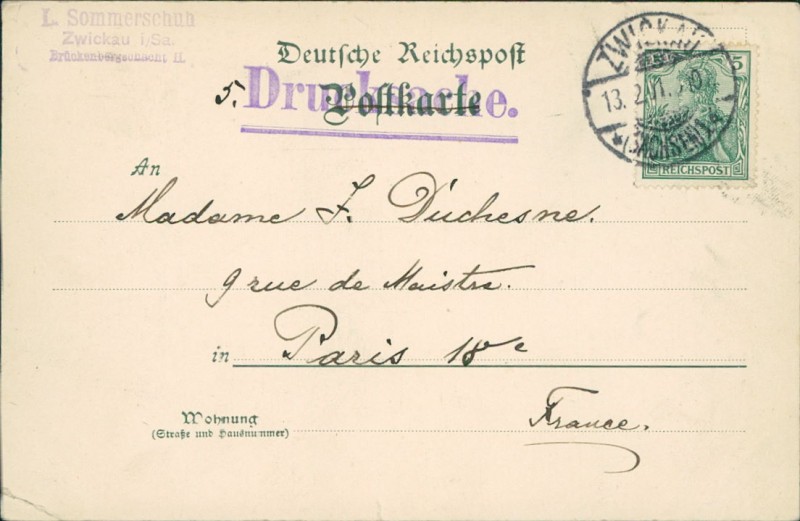 L. Sommerschuh
Zwickau i/Sa.
Brückenbergschacht II.
Deutsche Reichspost
5. Drucksache.
Postkarte
ZWICKAU
13.2.
(SACHSEN)
5
REICHSPOST
An
Madame F. Duchesne.
9 rue de Maistre.
in Paris 18e
France.
Wohnung
(Straße und Hausnummer)